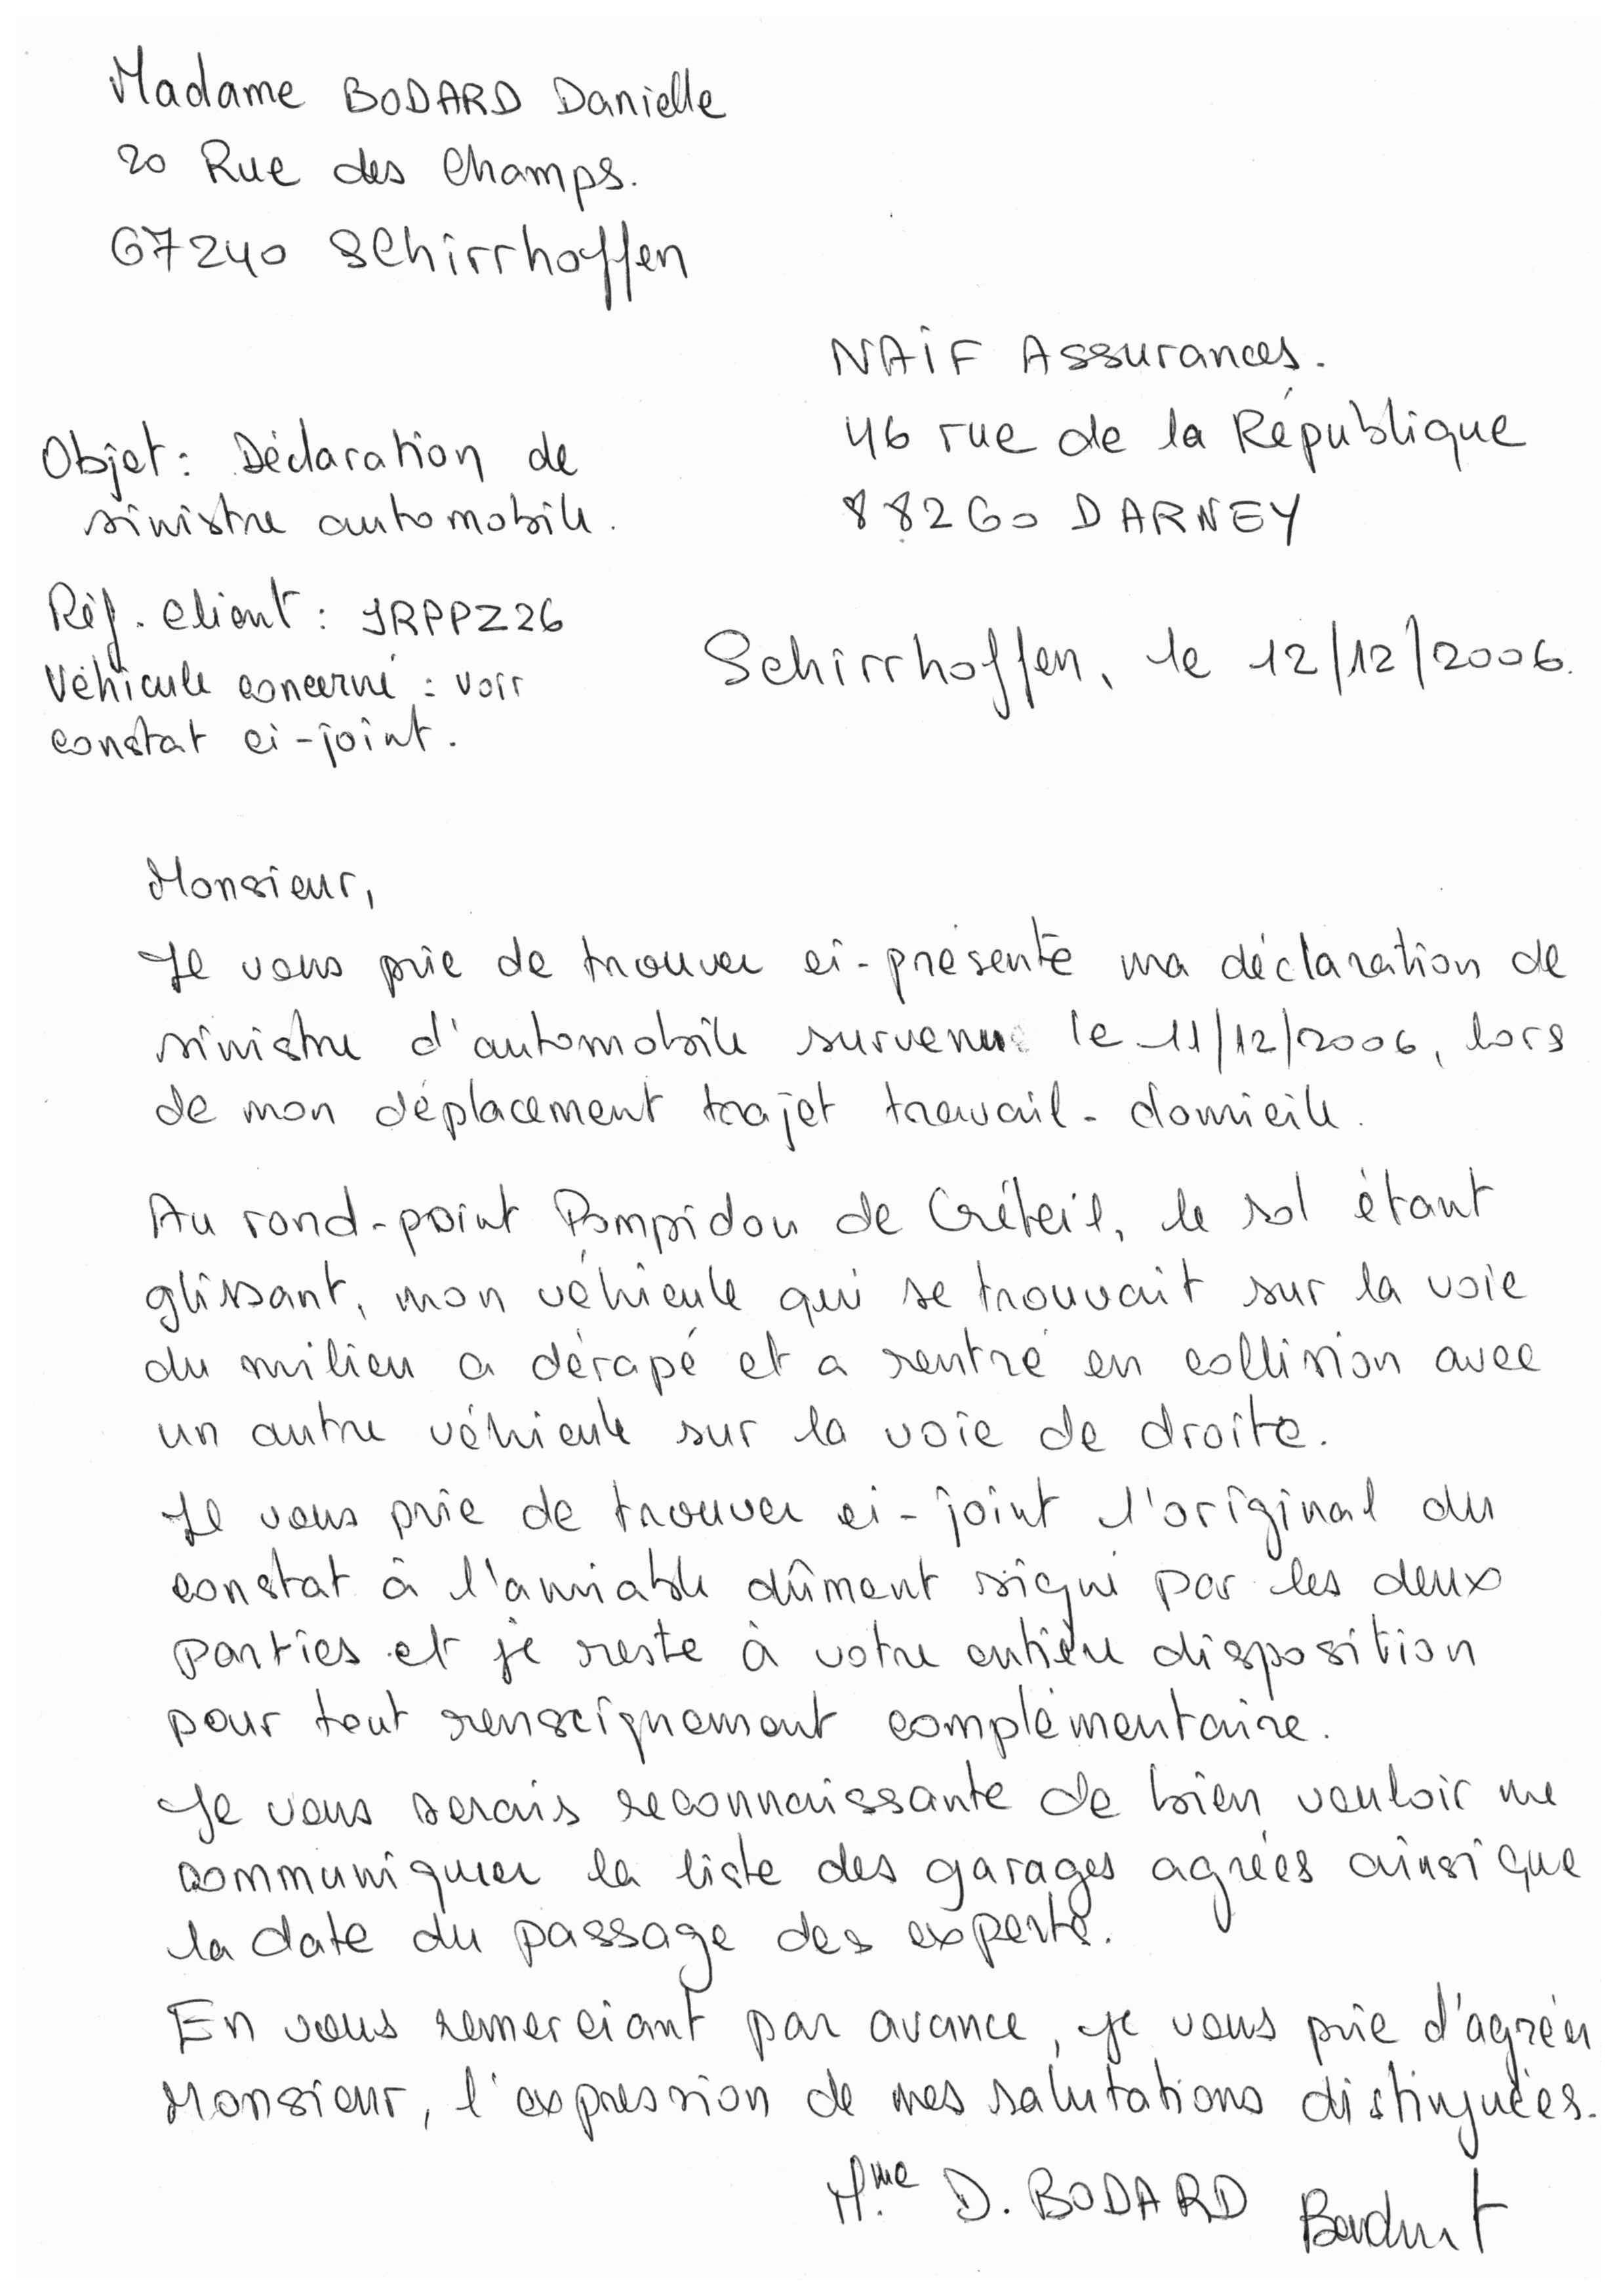 Madame BODARD Danielle
20 Rue des Champs.
67240 Schirrhoffen
NAIF Assurances.
46 rue de la République
88260 DARNEY
Objet : Déclaration de
sinistre automobile.
Réf. client : JRPPZ26
Véhicule concerné : voir
constat ci-joint.
Schirrhoffen, le 12/12/2006.
Monsieur,
Je vous prie de trouver ci-présente ma déclaration de
sinistre d'automobile survenu le 11/12/2006, lors
de mon déplacement trajet travail-domicile.
Au rond-point Pompidou de Créteil, le sol étant
glissant, mon véhicule qui se trouvait sur la voie
du milieu a dérapé et a rentré en collision avec
un autre véhicule sur la voie de droite.
Je vous prie de trouver ci-joint l'original du
constat à l'amiable dûment signé par les deux
parties et je reste à votre entière disposition
pour tout renseignement complémentaire.
Je vous serais reconnaissante de bien vouloir me
communiquer la liste des garages agréés ainsi que
la date du passage des experts.
En vous remerciant par avance, je vous prie d'agréer
Monsieur, l'expression de mes salutations distinguées.
Mme D. BODARD